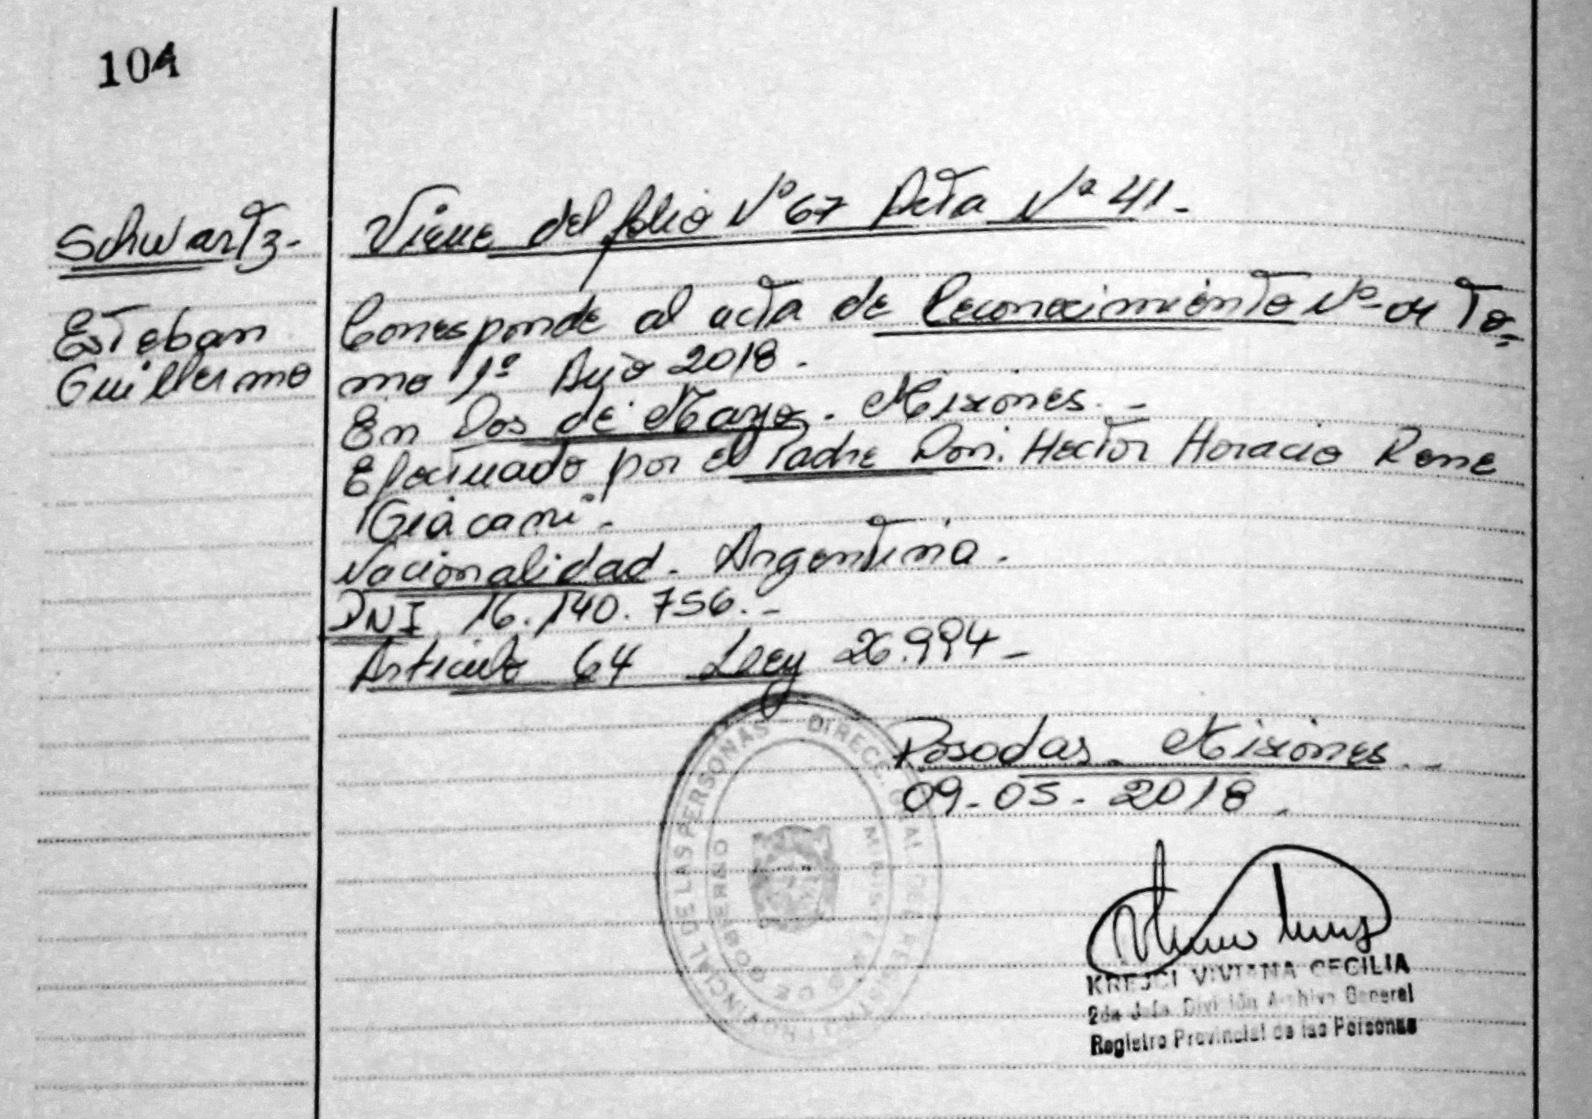 104
Schwartz-
Esteban
Guillermo
Viene del folio Nº 67 Acta Nº 41.-
Corresponde al acta de Reconocimiento Nº-04 To-
mo 1º Año 2018.-
En Dos de Mayo. Misiones.-
Efectuado por el Padre Don: Hector Horacio Rene
Giacami.-
Nacionalidad. Argentina.
DNI 16.140.756.-
Articulo 64 Ley 26.994-
Posadas. Misiones.-
09-05-2018.
DIRECC. GRAL. DEL REGISTRO PROVINCIAL DE LAS PERSONAS
MINISTERIO DE GOBIERNO
KREJCI VIVIANA CECILIA
2da Jefa División Archivo General
Registro Provincial de las Personas